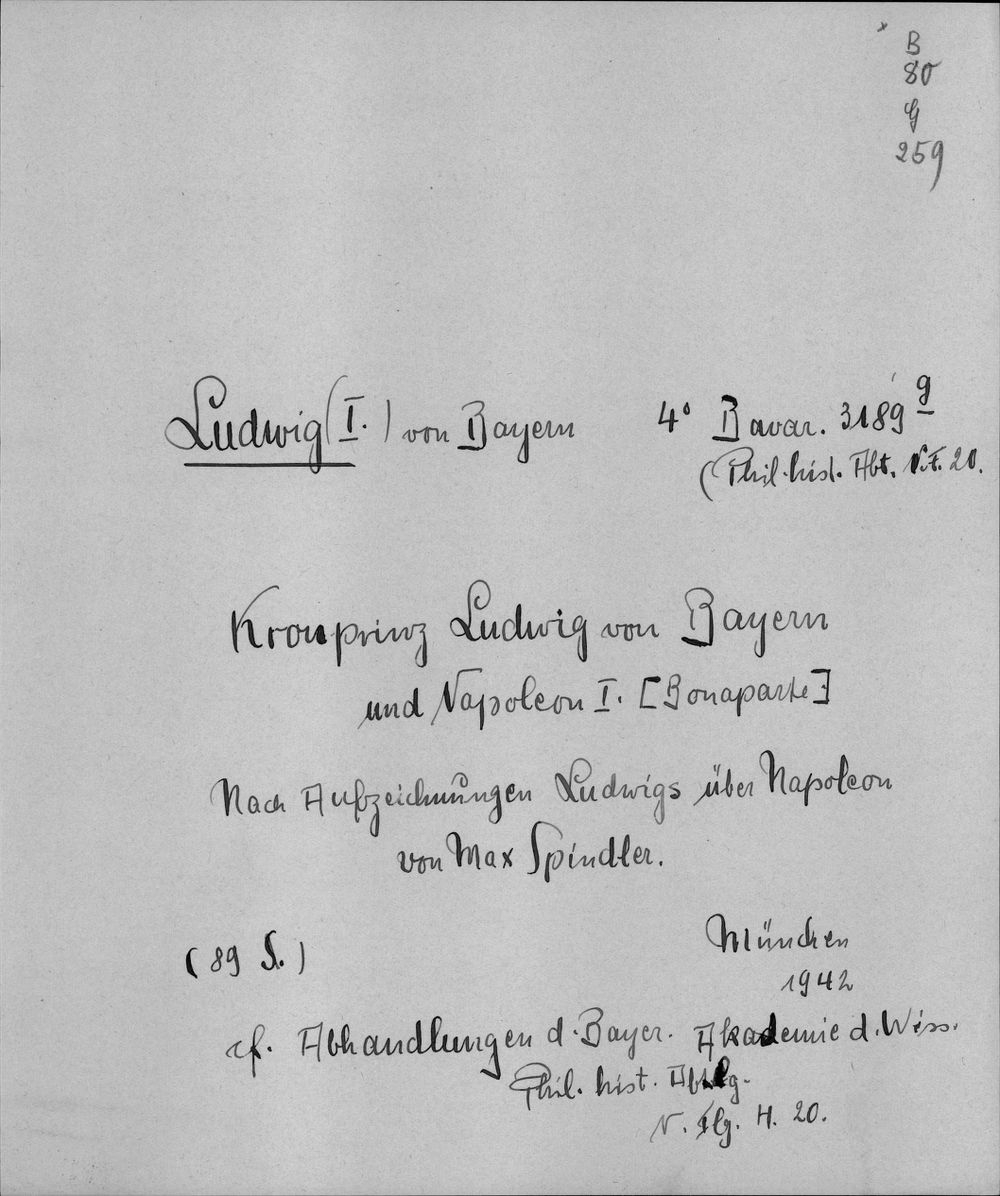 B
80
G
259
Ludwig (I.) von Bayern 4° Bavar. 3189 g
(Phil.hist. Abt. N.F. 20.
Kronprinz Ludwig von Bayern
und Napoleon I. [Bonaparte]
Nach Aufzeichnungen Ludwigs über Napoleon
von Max Spindler.
(89 S.) München
1942
cf. Abhandlungen d. Bayer. Akademie d. Wiss.
Phil. hist. Abtlg.
N. Flg. H. 20.